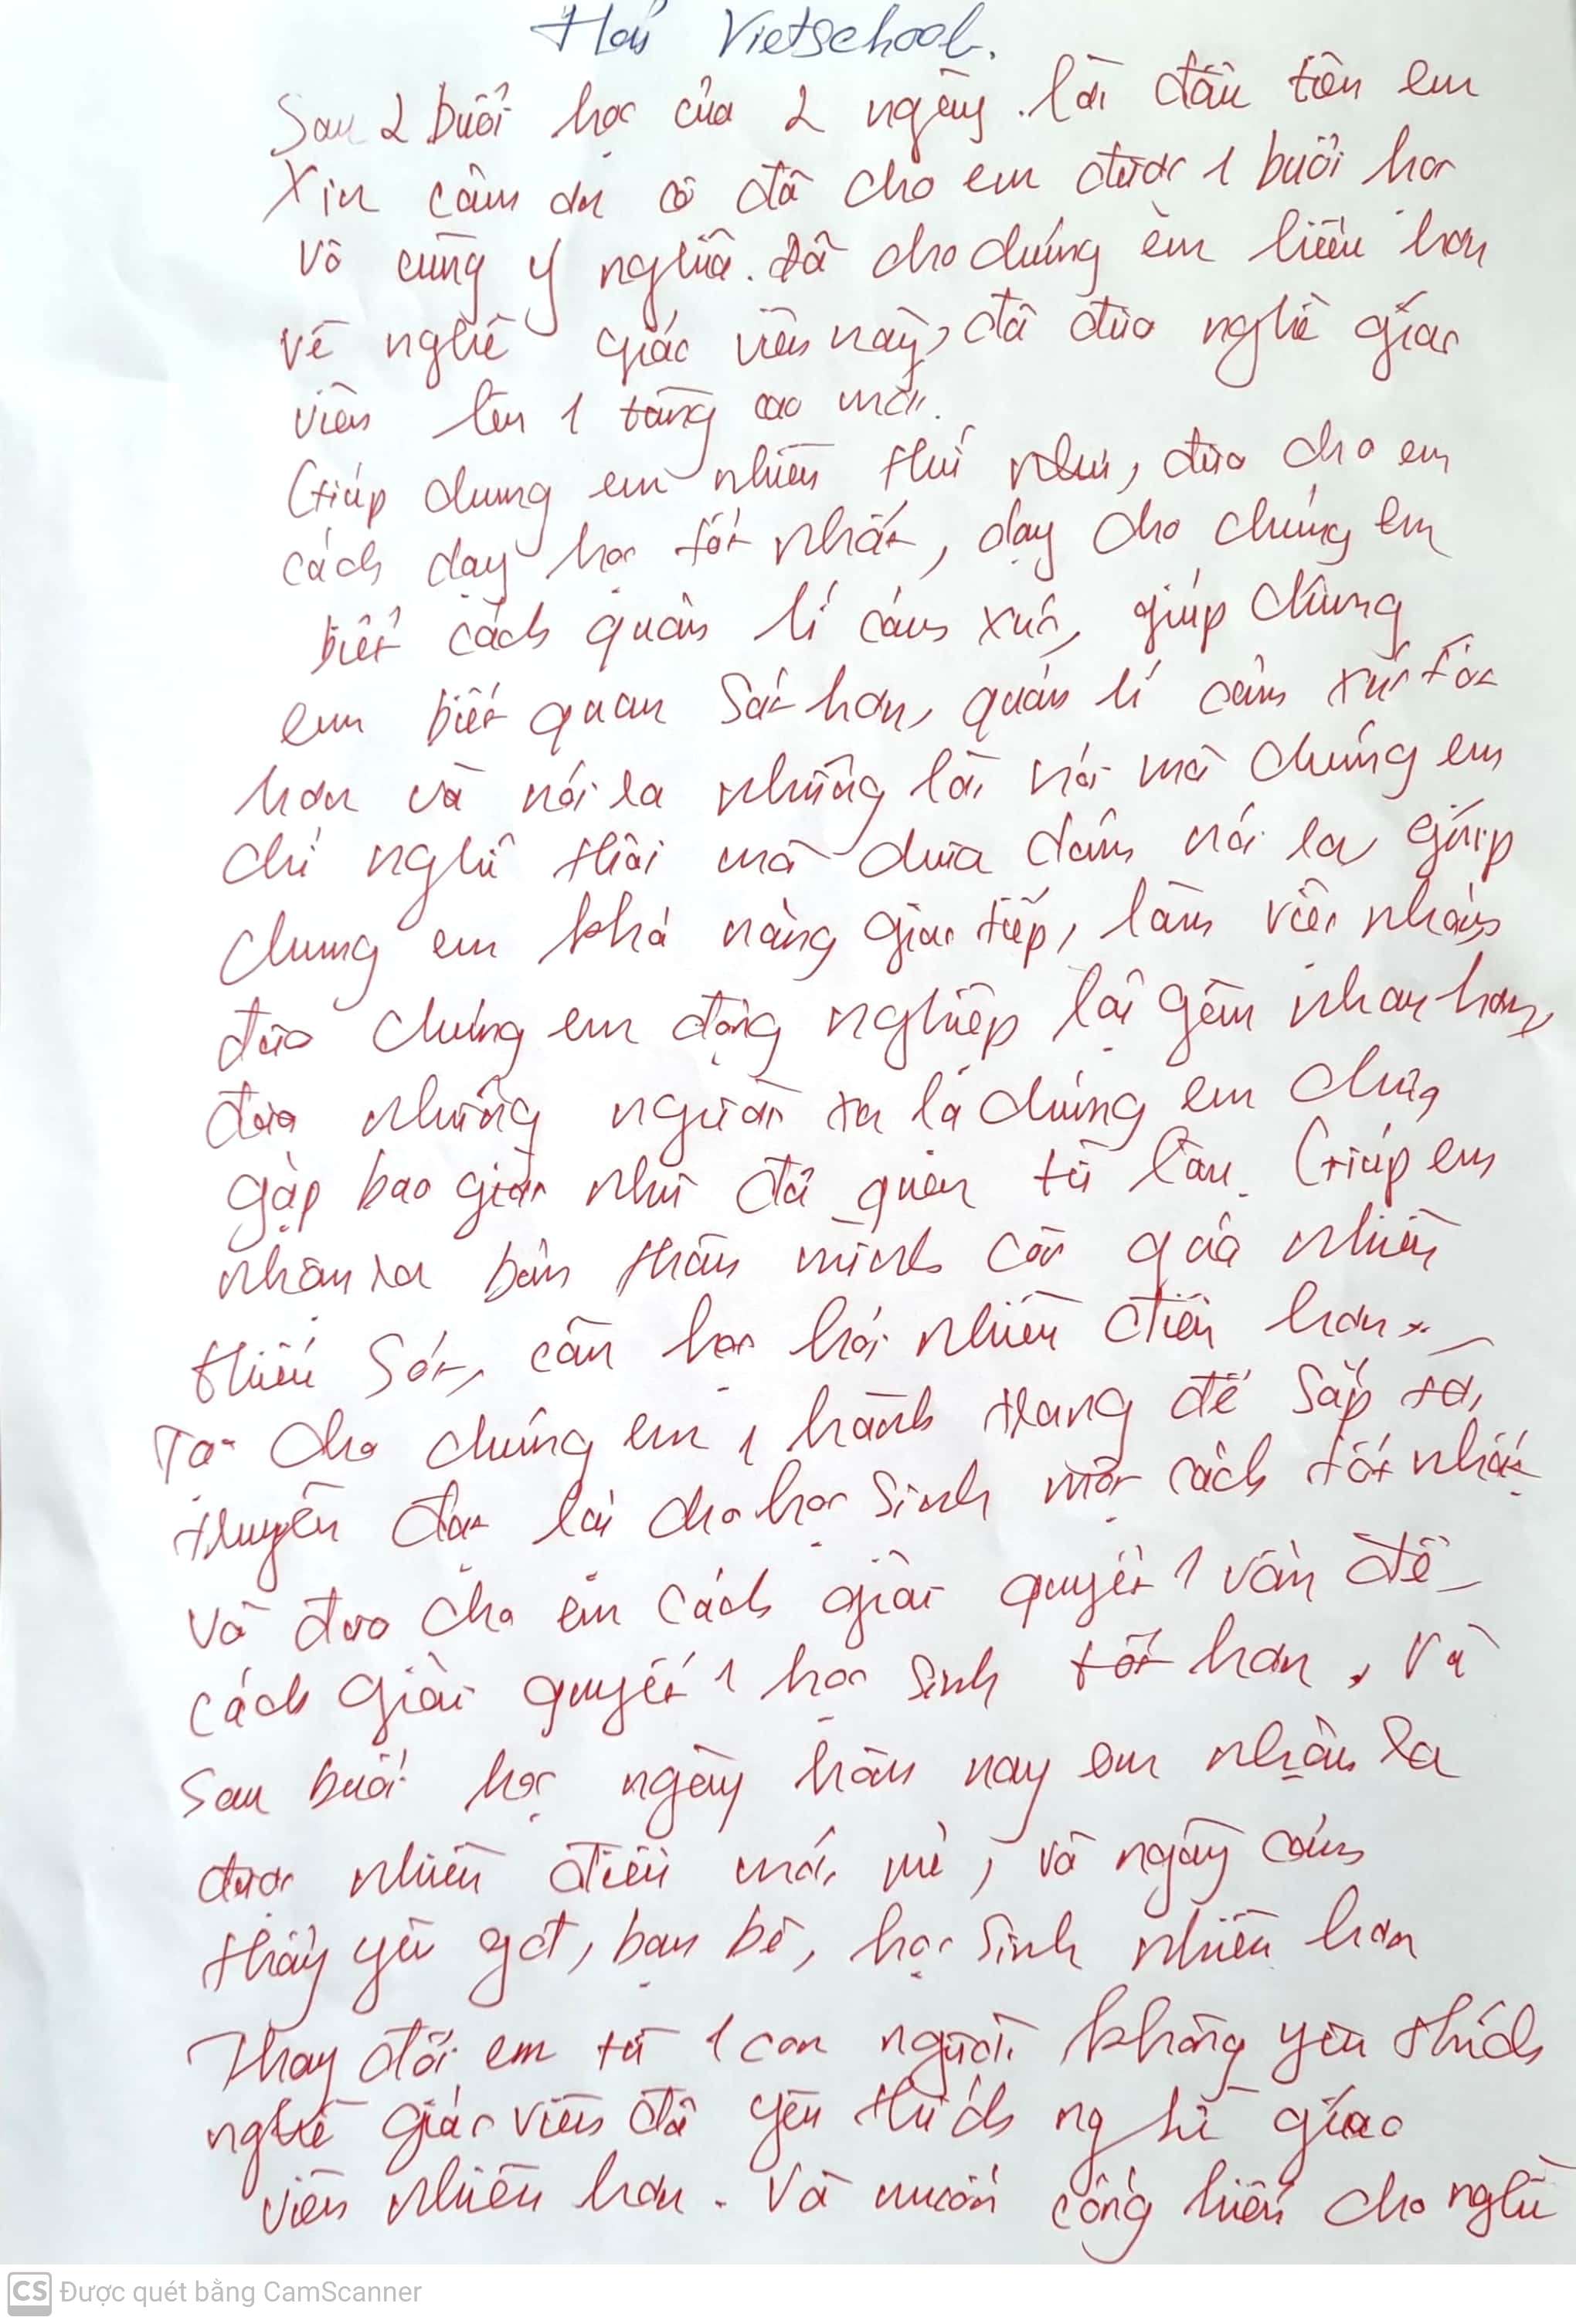 Vietschool.
Sau 2 buổi học của 2 ngày. lời đầu tiên em
Xin cảm ơn cô đã cho em được 1 buổi học
vô cùng ý nghĩa. đã cho chúng em hiểu hơn
về nghề giáo viên này, đã đưa nghề giáo
viên lên 1 tầng cao mới.
Giúp chúng em nhiều thứ như, đưa cho em
cách dạy học tốt nhất, dạy cho chúng em
biết cách quản lí cảm xúc, giúp chúng
em biết quan sát hơn, quản lí cảm xúc tốt
hơn và nói ra những lời nói mà chúng em
chỉ nghĩ thôi mà chưa dám nói ra giúp
chúng em khả năng giao tiếp, làm việc nhóm
đưa chúng em đồng nghiệp lại gần nhau hơn,
đưa những người xa lạ chúng em chưa
gặp bao giờ như đã quen từ lâu. Giúp em
nhận ra bản thân mình còn quá nhiều
thiếu sót, cần học hỏi nhiều điều hơn
Tạo cho chúng em 1 hành trang để sắp tới,
truyền đạt lại cho học sinh một cách tốt nhất
và đưa cho em cách giải quyết 1 vấn đề
cách giải quyết 1 học sinh tốt hơn, Và
Sau buổi học ngày hôm nay em nhận ra
được nhiều điều mới mẻ, và ngày càng
thấy yêu gđ, bạn bè, học sinh nhiều hơn
Thay đổi em từ 1 con người không yêu thích
nghề giáo viên đã yêu thích nghề giáo
viên nhiều hơn. Và muốn cống hiến cho nghề
CS Được quét bằng CamScanner